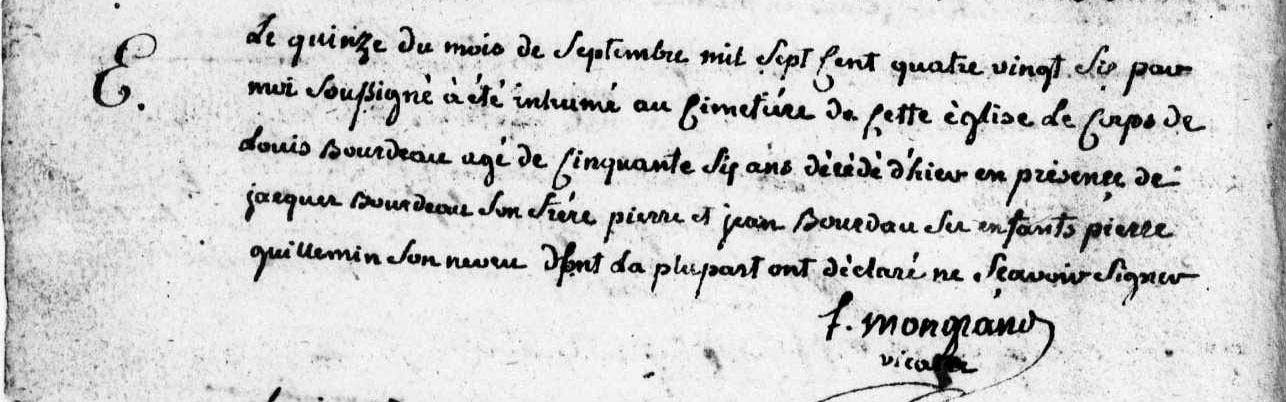 E.
Le quinze du mois de septembre mil sept cent quatre vingt six par
moi soussigné à été inhumé au cimetiére de cette église le corps de
Louis Bourdeau agé de cinquante six ans décédé d'hier en présence de
jacques Bourdeau son frére pierre et jean Bourdau ses enfants pierre
guillemin son neveu dont la plupart ont déclaré ne sçavoir signer
f. mongrand
vicaire